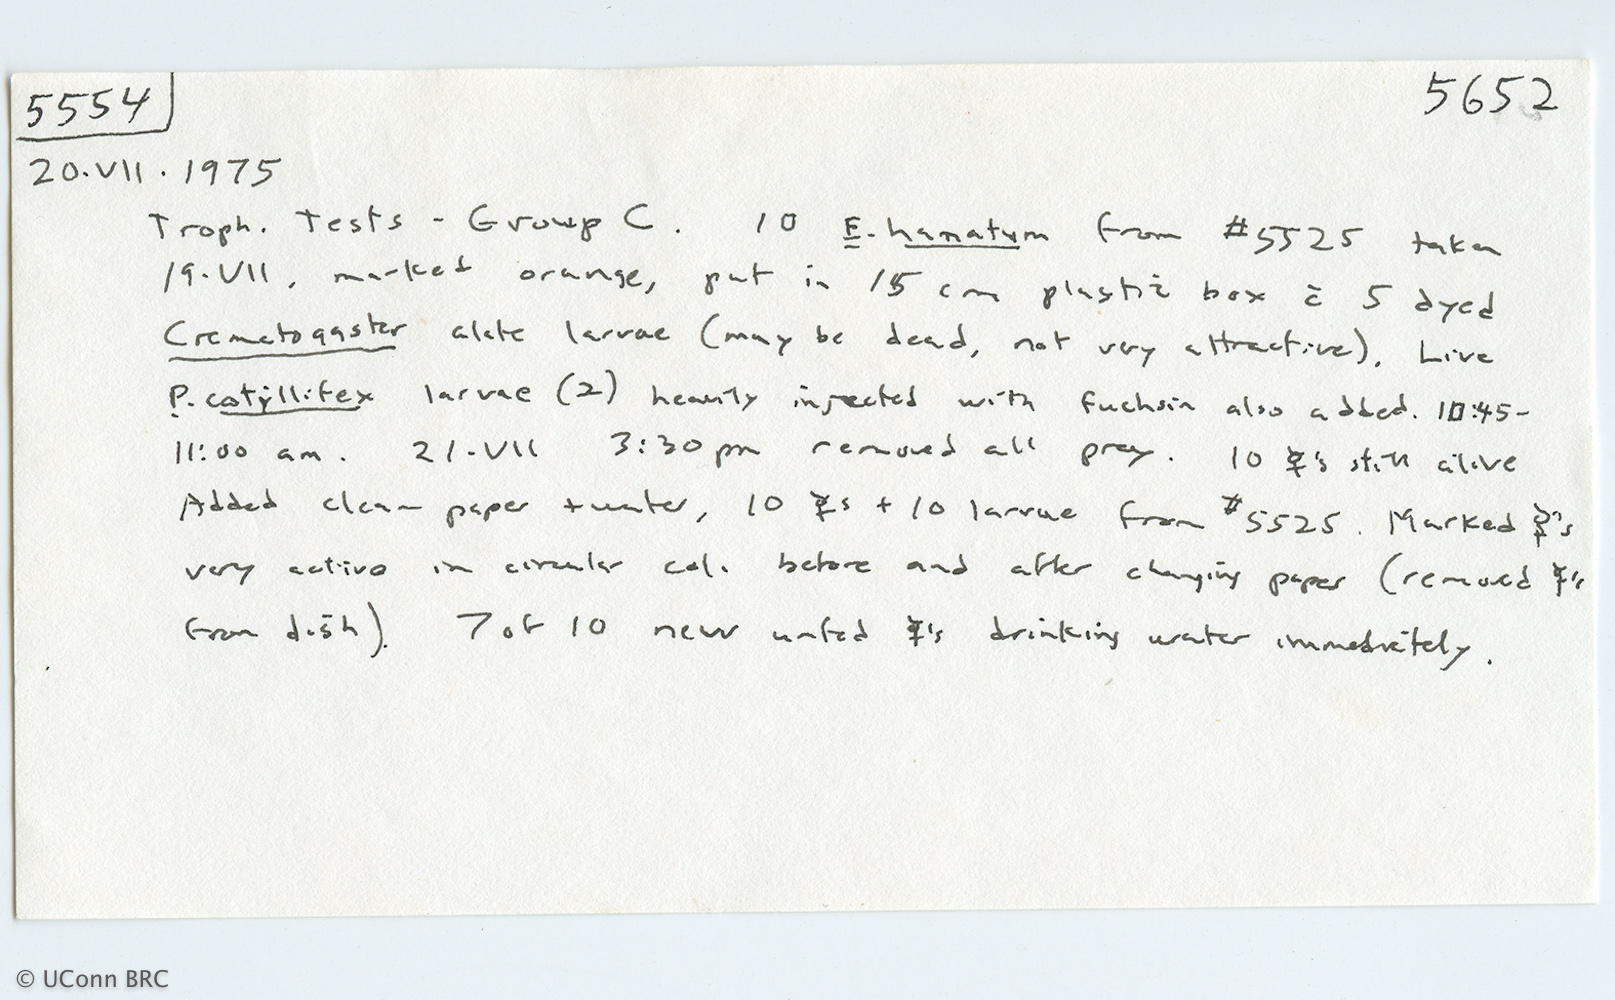 5554
5652
20.VII.1975
Troph. Tests - Group C. 10 E. hamatum from #5525 taken
19.VII, marked orange, put in 15 cm plastic box c̄ 5 dyed
Crematogaster alate larvae (may be dead, not very attractive). Live
P. catillifex larvae (2) heavily injected with fuchsin also added. 10:45-
11:00 am. 21.VII 3:30 pm removed all prey. 10 ☿'s still alive
Added clean paper + water, 10 ☿s + 10 larvae from #5525. Marked ☿'s
very active in circular col. before and after changing paper (removed ☿'s
from dish). 7 of 10 new unfed ☿'s drinking water immediately.
© UConn BRC